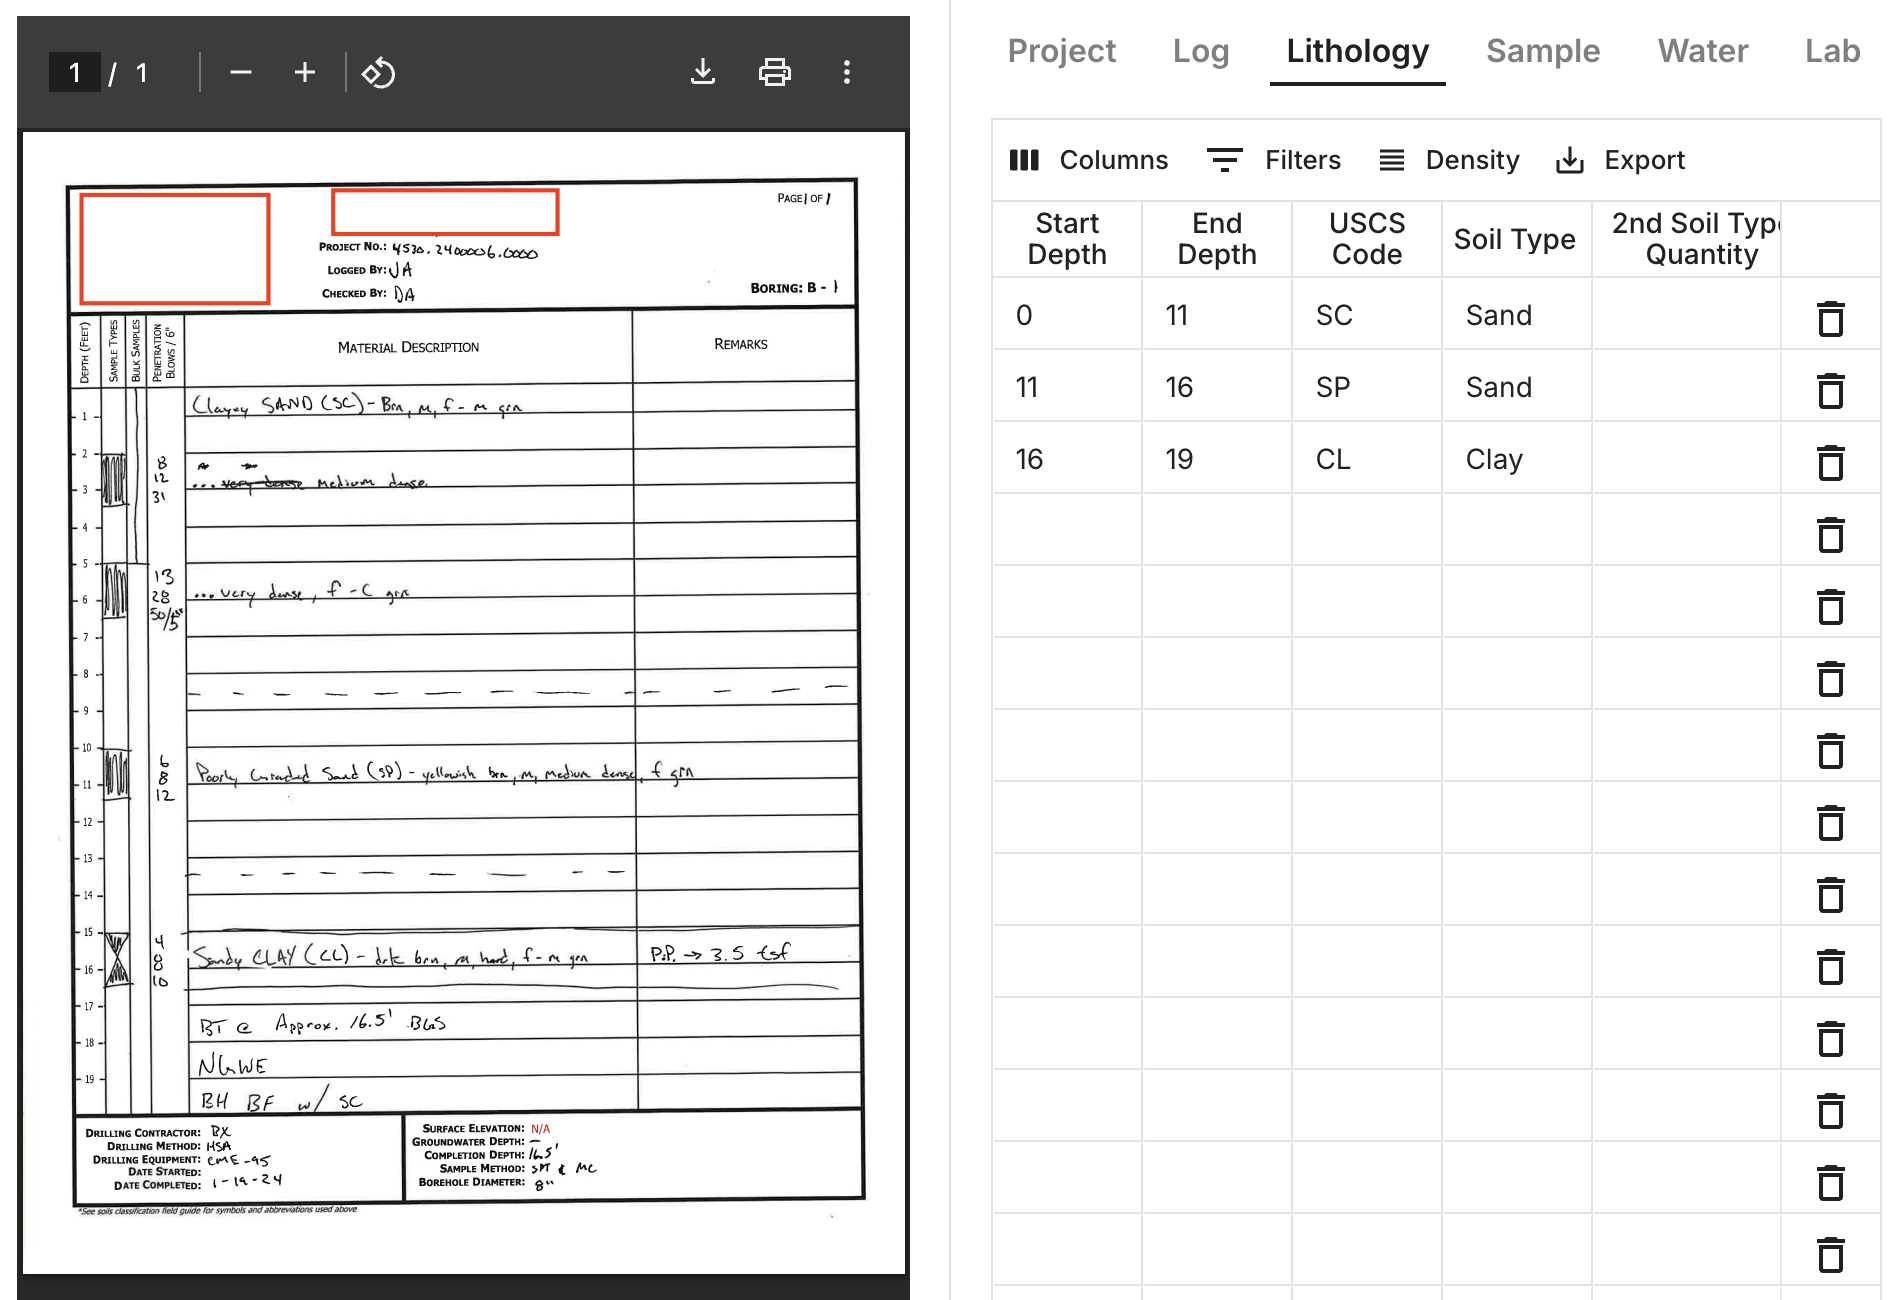 1 / 1
PAGE 1 OF 1
PROJECT NO.: 4530.2400006.0000
LOGGED BY: JA
CHECKED BY: DA
BORING: B - 1
DEPTH (FEET)
SAMPLE TYPES
BULK SAMPLES
PENETRATION BLOWS / 6"
MATERIAL DESCRIPTION
REMARKS
1
Clayey SAND (SC) - Brn, m, f - m grn
2
8
12
3
31
... very dense medium dense.
4
5
13
6
28
50/5"
... very dense, f - c grn
7
8
9
10
6
8
Poorly Graded Sand (SP) - yellowish brn, m, medium dense, f grn
11
12
12
13
14
15
4
8
Sandy CLAY (CL) - drk brn, m, hard, f - m grn
P.P. → 3.5 tsf
16
10
17
BT @ Approx. 16.5' BGS
18
NGWE
19
BH BF w/ SC
DRILLING CONTRACTOR: BX
DRILLING METHOD: HSA
DRILLING EQUIPMENT: CME-95
DATE STARTED:
DATE COMPLETED: 1-19-24
SURFACE ELEVATION: N/A
GROUNDWATER DEPTH: —
COMPLETION DEPTH: 16.5'
SAMPLE METHOD: SPT & MC
BOREHOLE DIAMETER: 8"
*See soils classification field guide for symbols and abbreviations used above
Project Log Lithology Sample Water Lab
Columns Filters Density Export
Start Depth
End Depth
USCS Code
Soil Type
2nd Soil Type Quantity
0 11 SC Sand
11 16 SP Sand
16 19 CL Clay